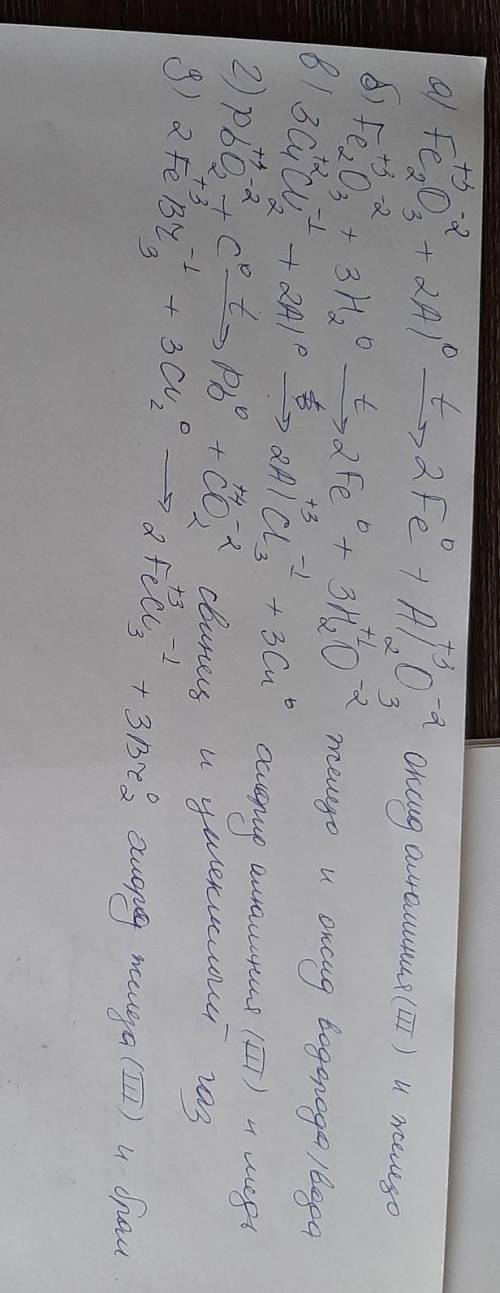 а) Fe₂⁺³O₃⁻² + 2Al⁰ —t→ 2Fe⁰ + Al₂⁺³O₃⁻² оксид алюминия (III) и железо
б) Fe₂⁺³O₃⁻² + 3H₂⁰ —t→ 2Fe⁰ + 3H₂⁺¹O⁻² железо и оксид водорода/вода
в) 3Cu⁺²Cl₂⁻¹ + 2Al⁰ → 2Al⁺³Cl₃⁻¹ + 3Cu⁰ хлорид алюминия (III) и медь
г) Pb⁺⁴O₂⁻² + C⁰ —t→ Pb⁰ + C⁺⁴O₂⁻² свинец и углекислый газ
д) 2Fe⁺³Br₃⁻¹ + 3Cl₂⁰ → 2Fe⁺³Cl₃⁻¹ + 3Br₂⁰ хлорид железа (III) и бром